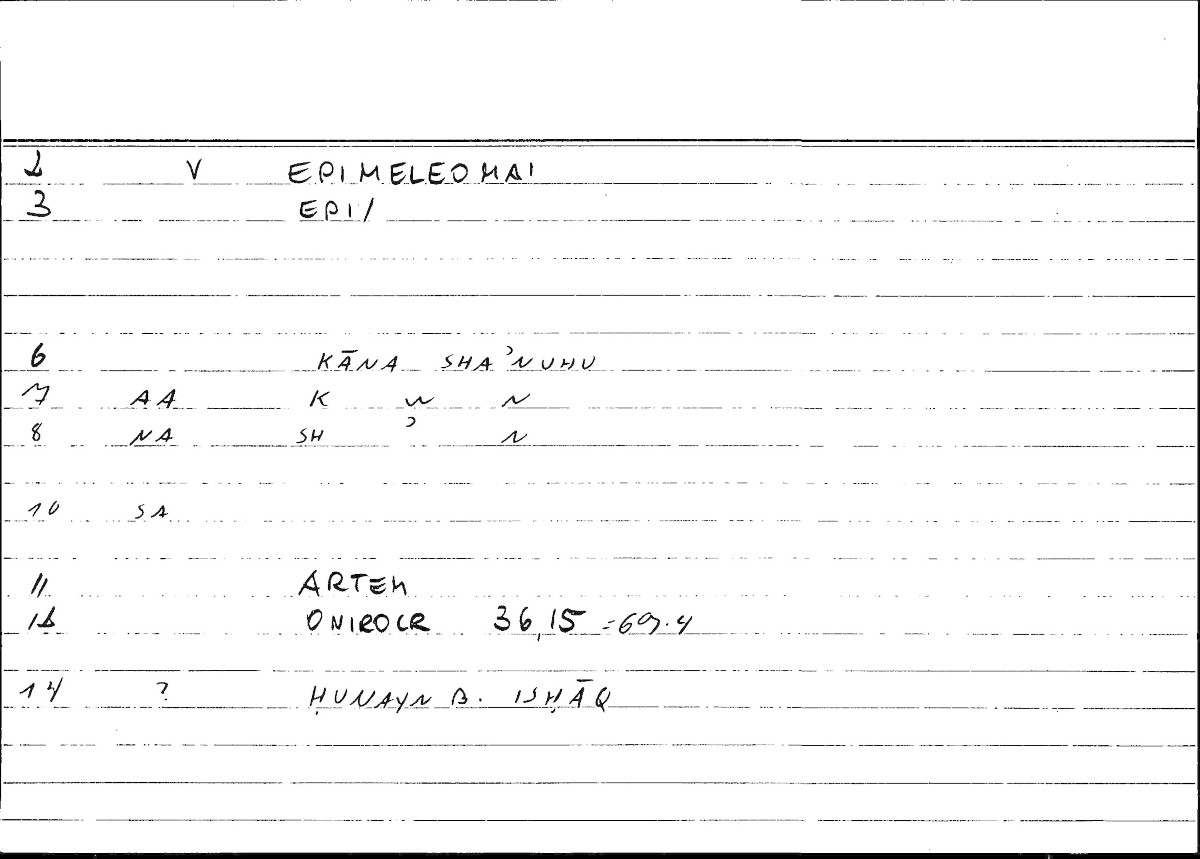 2 V EPIMELEOMAI
3 EPI/
6 KĀNA SHAʾNUHU
7 AA K W N
8 NA SH ʾ N
10 SA
11 ARTEM
12 ONIROCR 36,15 = 69.4
14 ? ḤUNAYN B. ISḤĀQ